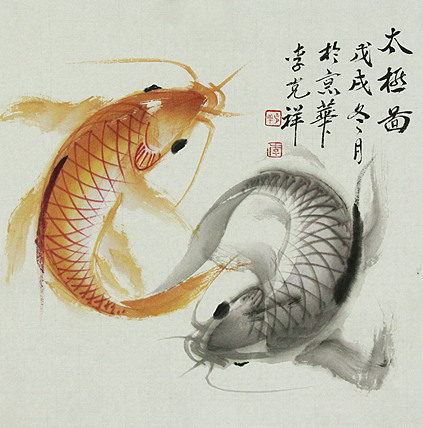 太極圖
戊戌冬月
於京華
李克祥